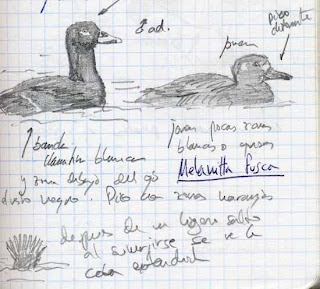 ♂ ad.
pico
distante
joven
↑ banda
blanca
joven pocas zonas
y zona debajo del ojo
blancas o grises
Melanitta fusca
resto negro. Pico con zonas naranjas
despues de un ligero salto
al sumergirse se ve la
cola